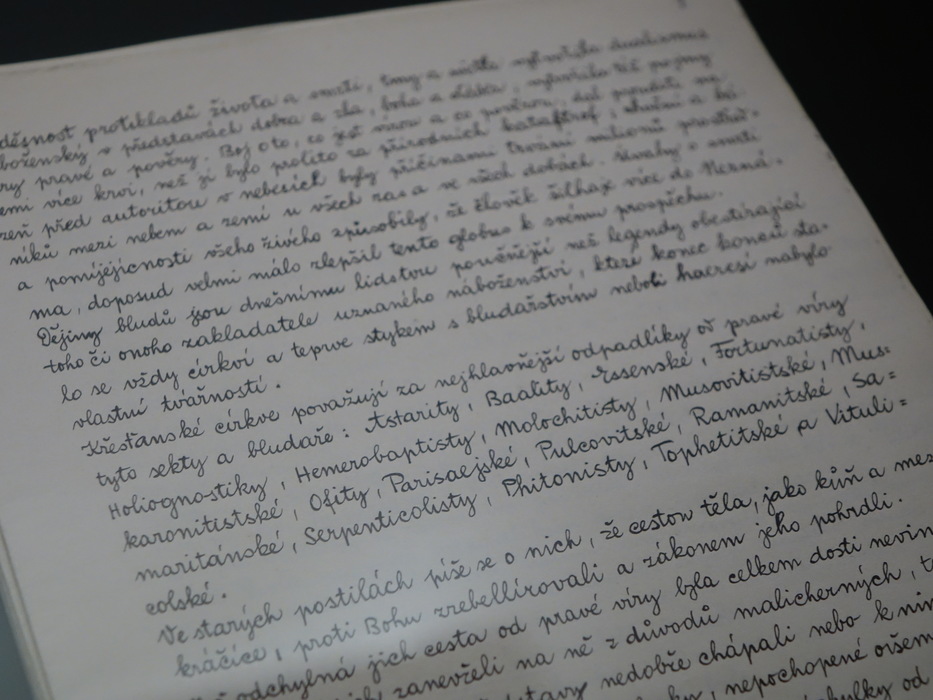 protikladů života a smrti, tmy a světla vytvořila dualismus
v představách dobra a zla, boha a ďábla, vytvořila též pojmy
víry pravé a pověry. Boj o to, co jest vírou a co pověrou, dal poroditi na
zemi více krve, než jí bylo prolito za přírodních katastrof,
před autoritou v nebesích byly příčinami trvání milionů prostřed-
níků mezi nebem a zemí u všech ras a ve všech dobách. Úvahy o smrti
a pomíjejícnosti všeho živého způsobily, že člověk šilhaje více do Nezná-
ma, doposud velmi málo zlepšil tento globus k svému prospěchu.
Dějiny bludů jsou dnešnímu lidstvu poučnější než legendy obestírající
toho či onoho zakladatele uznaného náboženství, které konec konců sta-
lo se vždy církví a teprve stykem s bludařstvím neboli haeresí nabylo
vlastní tvářnosti.
Křesťanské církve považují za nejhlavnější odpadlíky od pravé víry
tyto sekty a bludaře: Astarity, Baality, Essenské, Fortunatisty,
Holiognostiky, Hemerobaptisty, Molochitisty, Musovitistské, Mus=
karonitistské, Ofity, Parisaejské, Pulcovitské, Ramanitské, Sa=
maritánské, Serpenticolisty, Phitonisty, Tophetitské a Vituli=
colské.
Ve starých postilách píše se o nich, že cestou těla, jako kůň a mez
kráčíce, proti Bohu zrebellírovali a zákonem jeho pohrdli.
odchylná jich cesta od pravé víry byla celkem dosti nevin
zanevřeli na ně z důvodů malicherných,
nedobře chápali nebo k nim
nepochopené ovšem
od